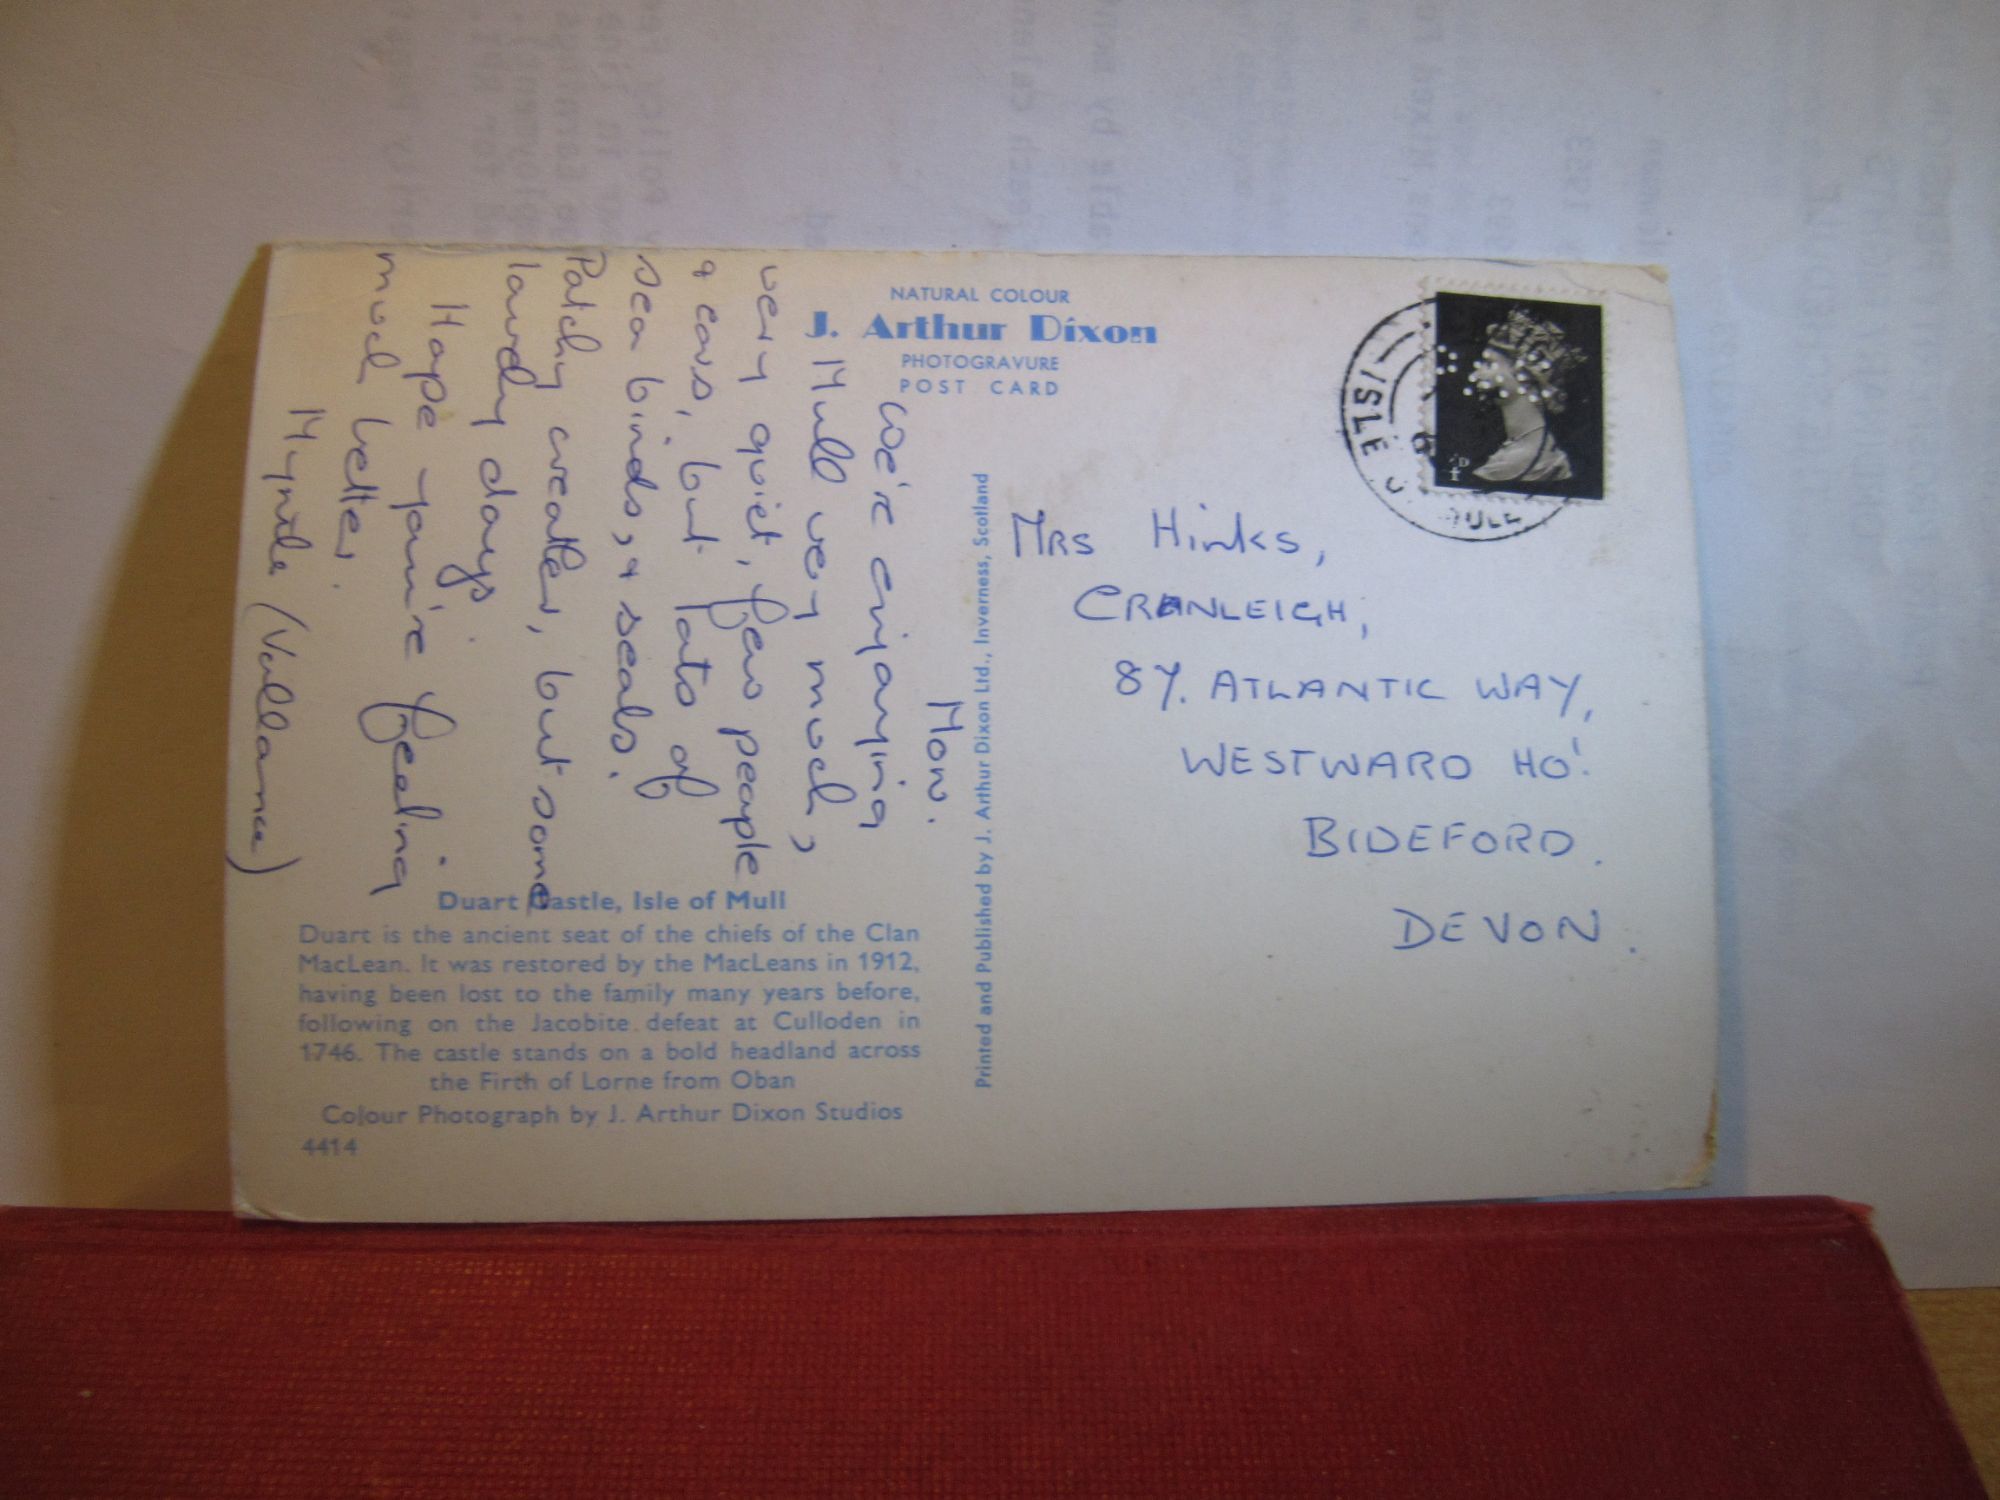 NATURAL COLOUR
J. Arthur Dixon
PHOTOGRAVURE
POST CARD
Mon.
We're enjoying
Mull very much,
very quiet, few people
& cars, but lots of
sea birds, & seals.
Patchy weather, but some
lovely days.
Hope you're feeling
much better.
Myrtle (Vallance)
Duart Castle, Isle of Mull
Duart is the ancient seat of the chiefs of the Clan
MacLean. It was restored by the MacLeans in 1912,
having been lost to the family many years before,
following on the Jacobite defeat at Culloden in
1746. The castle stands on a bold headland across
the Firth of Lorne from Oban
Colour Photograph by J. Arthur Dixon Studios
4414
Printed and Published by J. Arthur Dixon Ltd., Inverness, Scotland
ISLE O MULL
4D
MRS Hinks,
CRANLEIGH,
87. ATLANTIC WAY,
WESTWARD HO!
BIDEFORD.
DEVON.